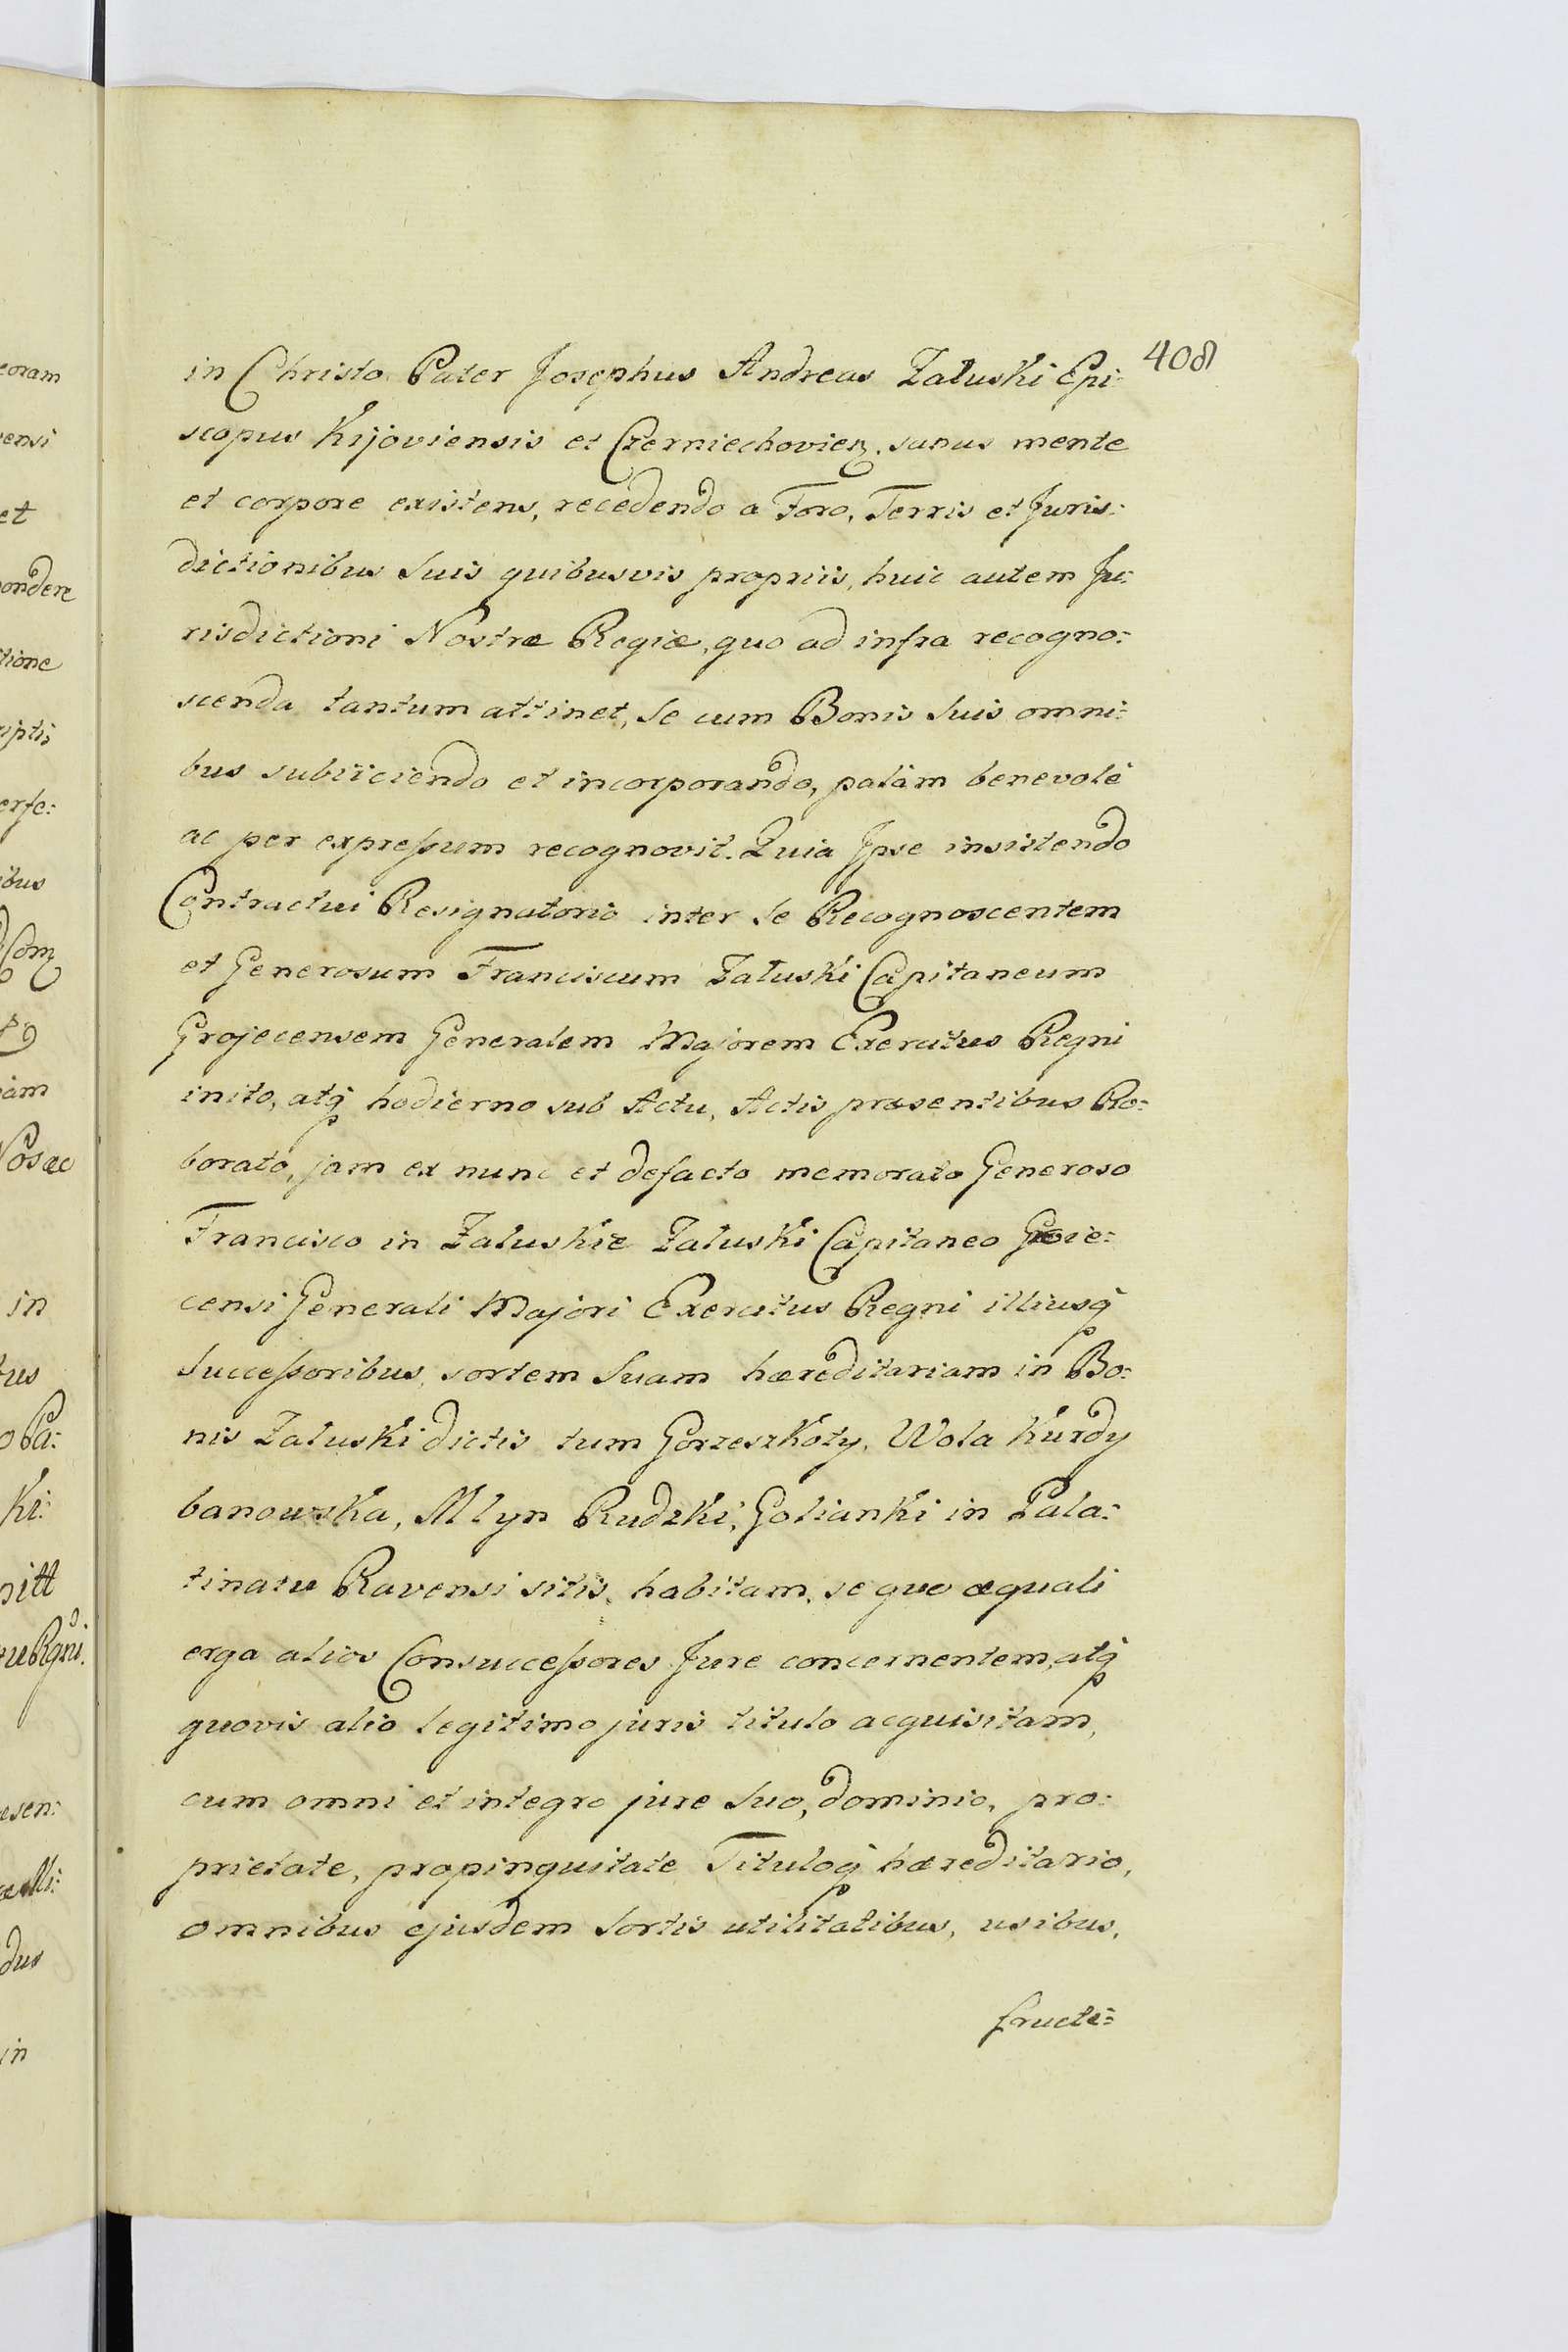 408
in Christo Pater Josephus Andreas Załuski Epi:
scopus Kijoviensis et Czerniechovien. sanus mente
et corpore existens, recedendo a Foro, Terris et Juris:
dictionibus Suis quibusvis propriis, huic autem Ju:
risdictioni Nostræ Regiæ, quo ad infra recogno:
scenda tantum attinet, Se cum Bonis Suis omni:
bus subiiciendo et incorporando, palàm benevolè
ac per expressum recognovit. Quia Ipse insistendo
Contractui Resignatorio inter Se Recognoscentem
et Generosum Franciscum Załuski Capitaneum
Grojecensem Generalem Majorem Exercitus Regni
inito, atq hodierno sub Actu, Actis præsentibus Ro:
borato, jam ex nunc et defacto memorato Generoso
Francisco in Załuskie Załuski Capitaneo Groie:
censi Generali Majori Exercitus Regni illiusq
Successoribus, sortem Suam hæreditariam in Bo:
nis Załuski dictis tum Gorzeszkoty, Wola Kurdy
banowska, Mlyn Rudzki, Golianki in Pala:
tinatu Ravensi sitis, habitam, se quo æquali
erga alios Consuccessores Jure concernentem, atq
quovis alio legitimo juris titulo acquisitam,
cum omni et integro jure Suo, dominio, pro:
prietate, propinquitate Tituloq hæreditario,
omnibus ejusdem Sortis utilitatibus, usibus,
fructi:
eoram
ensi
et
ondere
tione
iptis
erfe:
ibus
iàm
in
Ki:
esen:
dus
in